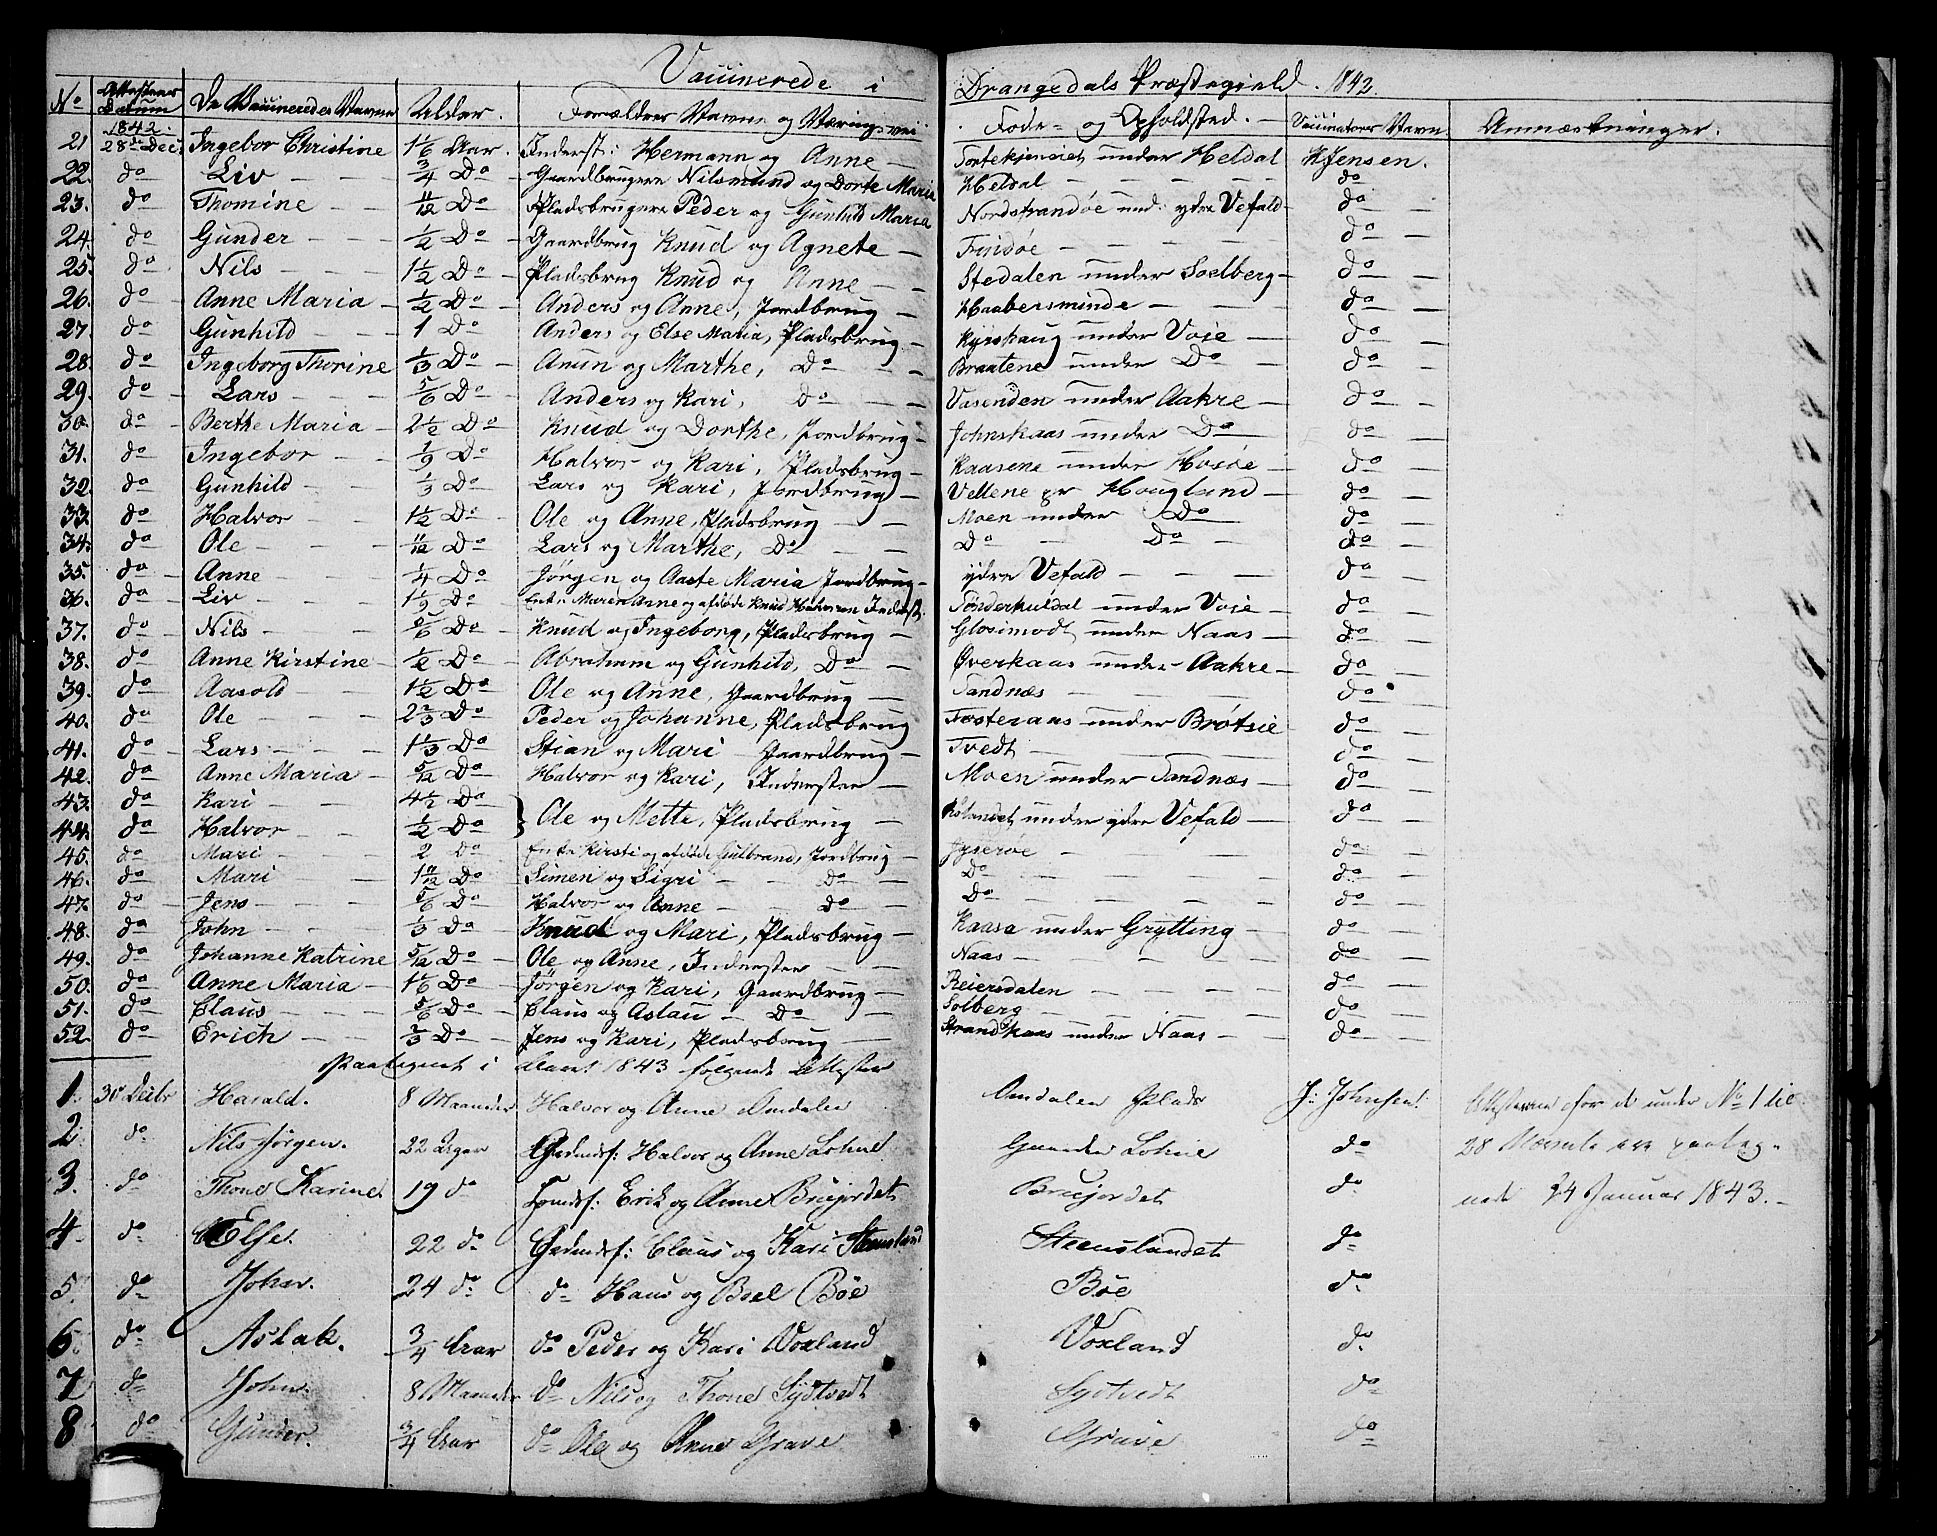 Vaccinerede i Drangedals Præstegield 1842.
No Attestens Datum De Vaccineredes Navne Alder. Forældres Navne og Næringsvei Føde- og Opholdsted. Vaccinators Navn Anmærkninger.
21 1842. 28de Dec. Ingebor Christine 1 1/6 Aar. Inderst: Hermann og Anne under Heldal KJensen.
22. do Liv 3/4 Do Gaardbrugere Nilsmund og Dorte Maria Heldal do
23. do Thomine 11/12 Do Pladsbrugere Peder og Gunhild Maria Nordstrandøe und: ydre Vefald do
24. do Gunder 1/2 Do Gaardbrug Knud og Agnete do
25. do Nils 1 1/2 Do Pladsbrug Knud og Anne Stedalen under Soelberg do
26. do Anne Maria 1/2 Do Anders og Anne, Jordbrug Haabersminde do
27. do Gunhild 1 Do Anders og Else Maria, Pladsbrug under Voje do
28. do Ingeborg Thorine 1/3 Do Anun og Marthe, Do Braatene under Do do
29. do Lars 5/6 Do Anders og Kari, do Vasenden under Aakre do
30. do Berthe Maria 2 1/2 Do Knud og Dorthe, Jordbrug Johnskaas under Do do
31. do Ingebor 1/9 Do Halvor og Kari, Pladsbrug Kaasene under Hosøe do
32. do Gunhild 1/3 Do Lars og Kari, Jordbrug Vellene pr Hougland do
33. do Halvor 1 1/2 Do Ole og Anne, Pladsbrug Moen under Do do
34. do Ole 11/12 Do Lars og Marthe, Do Do Do do
35. do Anne 1/4 Do Jørgen og Aaste Maria Jordbrug ydre Vefald do
36. do Liv 1 1/9 Do Enke Maren Anne og afdøde Knud Halvorsen Inderst. Sønderhuldal under Voje do
37. do Nils 5/6 Do Knud og Ingeborg, Pladsbrug Glosimodt under Naas do
38. do Anne Kirstine 1/2 Do Abraham og Gunhild, Do Øverkaas under Aakre do
39. do Aasold 1 1/2 Do Ole og Anne, Gaardbrug Sandnæs do
40. do Ole 2 2/3 Do Peder og Johanne, Pladsbrug Fosteraas under Brøtsie do
41. do Lars 1 1/3 Do Stian og Mari Gaardbrug Tvedt do
42. do Anne Maria 5/12 Do Halvor og Kari, Inderster Moen under Sandnæs do
43. do Kari 4 1/2 Do } Ole og Mette, Pladsbrug under ydre Vefald do
44. do Halvor 1/2 Do
45. do Mari 2 Do Enke Kirsti og afdøde Gulbrand, Jordbrug do
46. do Mari 1 11/12 Do Simen og Sigri Do Do do
47. do Jens 5/6 Do Halvor og Anne Do Do do
48. do John 1/3 Do Knud og Mari, Pladsbrug Kaasa under Grytting do
49. do Johanne Katrine 5/12 Do Ole og Anne, Inderster Naas do
50. do Anne Maria 1 1/6 Do Jørgen og Kari, Gaardbrug Reiersdalen do
51. do Claus 5/6 Do Claus og Aslau Do Solberg do
52. do Erich 2/3 Do Jens og Kari, Pladsbrug Strandkaas under Naas do
Paategnet i Aaret 1843 følgende Attester
1. 30 Decbr Harald. 8 Maaneder Halvor og Anne Omdalen Omdalen Plads J: Johnsen. Attesterne for de under No 1 til
2. do Nils Jørgen. 22 Uger Grdmdsf: Halvor og Anne Lohne Lohne do 28 ere paateg-
3. do Thone Karine 19 do Erik og Anne Bruejordet Bruejordet do nede 24 Januar 1843.
4. do Else. 22 do Grdmdsf: Claus og Kari Steensland Steenslandet do
5. do Johan. 24 do do Hans og Boel Bøe Bøe do
6. do Aslak. 3/4 Aar do Peder og Kari Voxland Voxland do
7 do John 8 Maaneder do Nils og Thone Sydtvedt Sydtvedt do
8 do Gunder. 3/4 Aar do Ole og Anne Grave Grave do